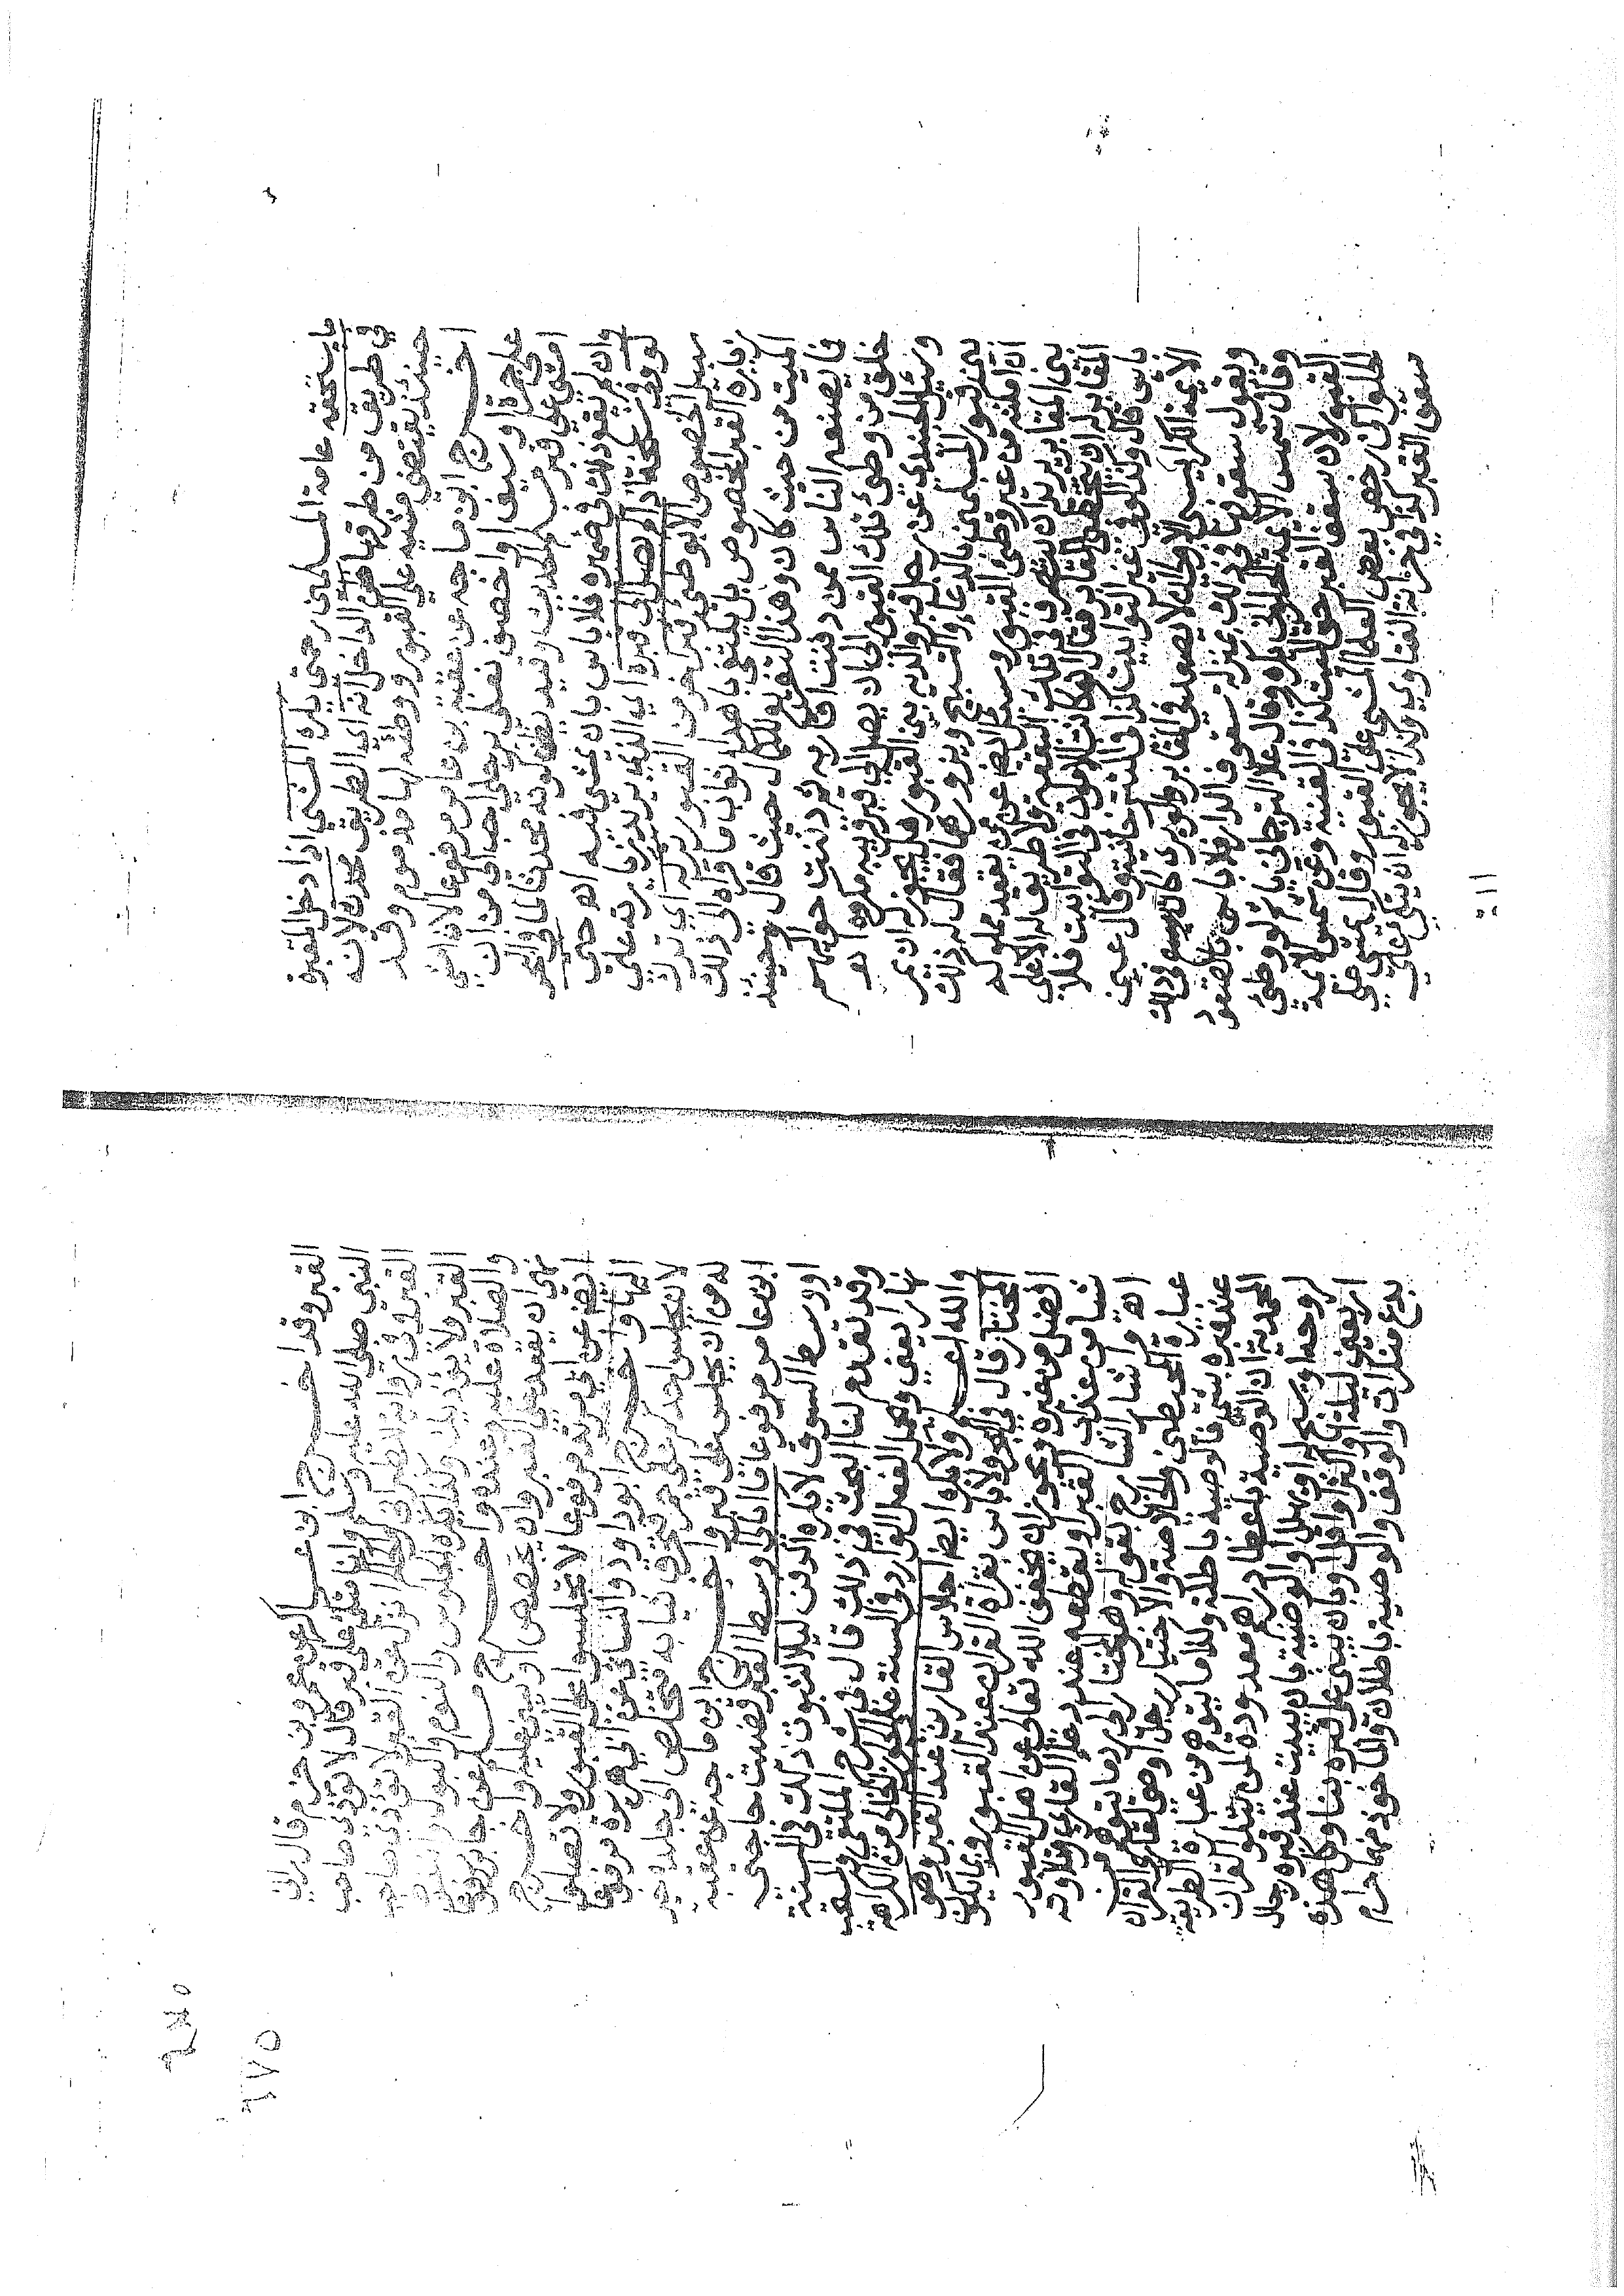 ما يستحقه عامة المسلمين رحمتي يكره المشي اذا دخل المقبرة
في طريق من طرقها ظن الداخل انه اي الطريق محدث لانه
حينئذ يقتضي مشيه على القبور ووطئه لها مذموم وقد
اخرج ابن ماجه عن عقبة بن عامر مرفوعا لان امشي
على جمرة او سيف او اخصف نعلي برجلي احب الي من ان
امشي على قبر مسلم الحديث وتقييد بظن كونه محدثا لما قالوا
وان لم يقع ذلك في ضميره فلا باس بان يمشي فيه اه حتى
اذا لم يصل الى قبره اي الذي يريد زيارته على
سبيل الخصوص الا بوطئ قبر اخر من القبور تركه اي ترك
زيارة القبر المخصوص بل يكتفي باهدا ثواب ما قراه الى ذلك
الميت من حيث كان وهذا التفريع للكمال حيث قال وحينئذ
فما يصنعه الناس ممن دفنت اقاربه ثم دفنت حواليهم
خلق من وطئ تلك القبور الى ان يصل الى قبر قريبه مكروه اه
وسئل الخجندي عن رجل قبر والديه بين القبور هل يجوز له ان يمر
بين قبور المسلمين بالدعاء والتسبيح ويزورهما فقال له ذلك
ان امكنه من غير وطئ القبور وسئل ايضا عمن يقعد مملوكه
بين المقابر يريد ان يتصرف في تلك البقعة ولا طريق له الا على
المقابر له ان يتخطى المقابر فقال ان كانت الاموات في التوابيت فلا
باس قال وكذا لو في غير التوابيت كذا في اليتيمة وقال عين
الائمة الكرابيسي الاولى ان لا يصعد في المقابر والوبري كان يوسع في ذلك
ويقول سقوفها في ذلك بمنزلة سقوف الدار فلا باس بالصعود
وقال شمس الائمة الحلواني يكره وقال علا الترجماني ياثم بوطئ
القبور لان سقف القبر حق الميت كذا في القنية وعن شمس الائمة
الحلواني رخص بعض العلما المشي على القبور وقال يمشي على
سقف القبر كذا في خزانة الفتاوي وكذا لا يجوز له ان يتكي على
القبر وقد اخرج ابن عساكر عن عمرو بن حزم قال راني
النبي صلى الله عليه وسلم وانا متكئ على قبر فقال لا تؤذ صاحب
القبر وفي رواية للطبراني والحاكم انزل عن القبر لا تؤذي صاحب
القبر ولا يؤذيك وكذا يكره الجلوس والنوم والبول
والصلاة عليه وعنده واخرج مسلم عن جابر
نهى ان يقعد على القبر وان يجصص او يبنى عليه واخرج
ايضا عن ابي مرثد مرفوعا لا تجلسوا على القبور ولا تصلوا
اليها واخرج ابو داود والنسائي عن ابي هريرة مرفوعا
لان يجلس احدكم على جمرة فتحرق ثيابه فتخلص الى جلده خير
له من ان يجلس على قبر واخرج ابن ماجه عن عقبة
ابن عامر مرفوعا ما ابالي اوسط القبر قضيت حاجتي
او وسط السوق لا يكره الدفن ليلا لثبوت ذلك في السنة
وقد تقدم لنا البحث في ذلك قال في شرح الملتقى والمستحب
نهارا يعني وحمل الفعل الوارد في السنة على الخالي من الكراهة
والله اعلم ولا يكره ايضا اجلاس القارئين عند القبر وهو
المختار قال في البحر ولا باس بقراة القران عند القبور وربما تكون
افضل من غيره ويجوز ان يخفف الله تعالى عن اهل القبور
شيا من عذاب القبر او يقطعه عند دعا القارئ وتلاوته
اه واشار الشارح بقوله وهو المختار الى رد ما يتوهم من
عبارة المحيط والخلاصة والاختيار رجل اوصى لقارئ القران
عند قبره بشئ فالوصية باطلة وكذا ما يتوهم من عبارة الطريقة
المحمدية ان الوصية باعطا دراهم معدودة لمن يتلو القران
لروحه او يسبح له او يهلل والوصية بان يبيت عند قبره رجل
اربعين ليلة او اكثر او اقل او بان يبنى على قبره بنا وكل هذه
بدع منكرات والوقف والوصية باطلان والماخوذ منهما حرام